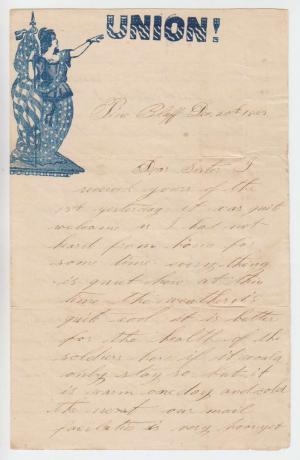 UNION!
Pine Bluff Dec. 20th 186
Dear Sister I
received yours of the
13th yesterday it was quit
welcome as I has not
hard from home for
some time everything
is quiet here at this
time the weather is
quit cool it is better
for the health of the
soldiers here if it would
only stay so but it
is warm one day and cold
the next our mail
is very